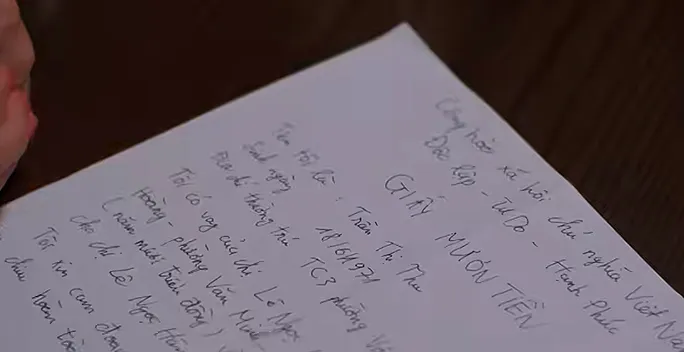 Cộng hòa xã hội chủ nghĩa Việt Na
Độc lập - Tự Do - Hạnh Phúc
GIẤY MƯỢN TIỀN
Tên tôi là : Trần Thị Thu
Sinh ngày 18/6/1971
Địa chỉ thường trú TC3 phường Vă
Tôi có vay của chị Lê Ngọc
Hoàng - phường Văn Minh
(năm mươi triệu đồng)
cho chị Lê Ngọc Hân
Tôi xin cam đoan
chịu hoàn toà